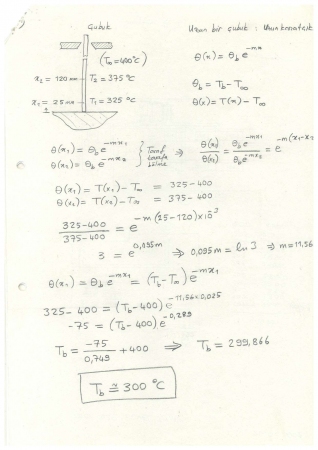 Çubuk
Uzun bir çubuk : Uzun kanatçık
(T∞=400°C)
θ(x) = θb e^-mx
x2 = 120 mm T2 = 375 °C
θb = Tb - T∞
x1 = 25 mm T1 = 325 °C
θ(x) = T(x) - T∞
θ(x1) = θb e^-mx1
θ(x2) = θb e^-mx2
Taraf tarafa bölme
⇒ θ(x1)/θ(x2) = θb e^-mx1 / θb e^-mx2 = e^-m(x1-x2)
θ(x1) = T(x1) - T∞ = 325-400
θ(x2) = T(x2) - T∞ = 375-400
325-400 / 375-400 = e^-m(25-120)×10^-3
3 = e^0,095m ⇒ 0,095m = ln 3 ⇒ m = 11,56
θ(x1) = θb e^-mx1 = (Tb - T∞) e^-mx1
325-400 = (Tb-400) e^-11,56×0,025
-75 = (Tb-400) e^-0,289
Tb = -75/0,749 + 400 ⇒ Tb = 299,866
Tb ≅ 300 °C